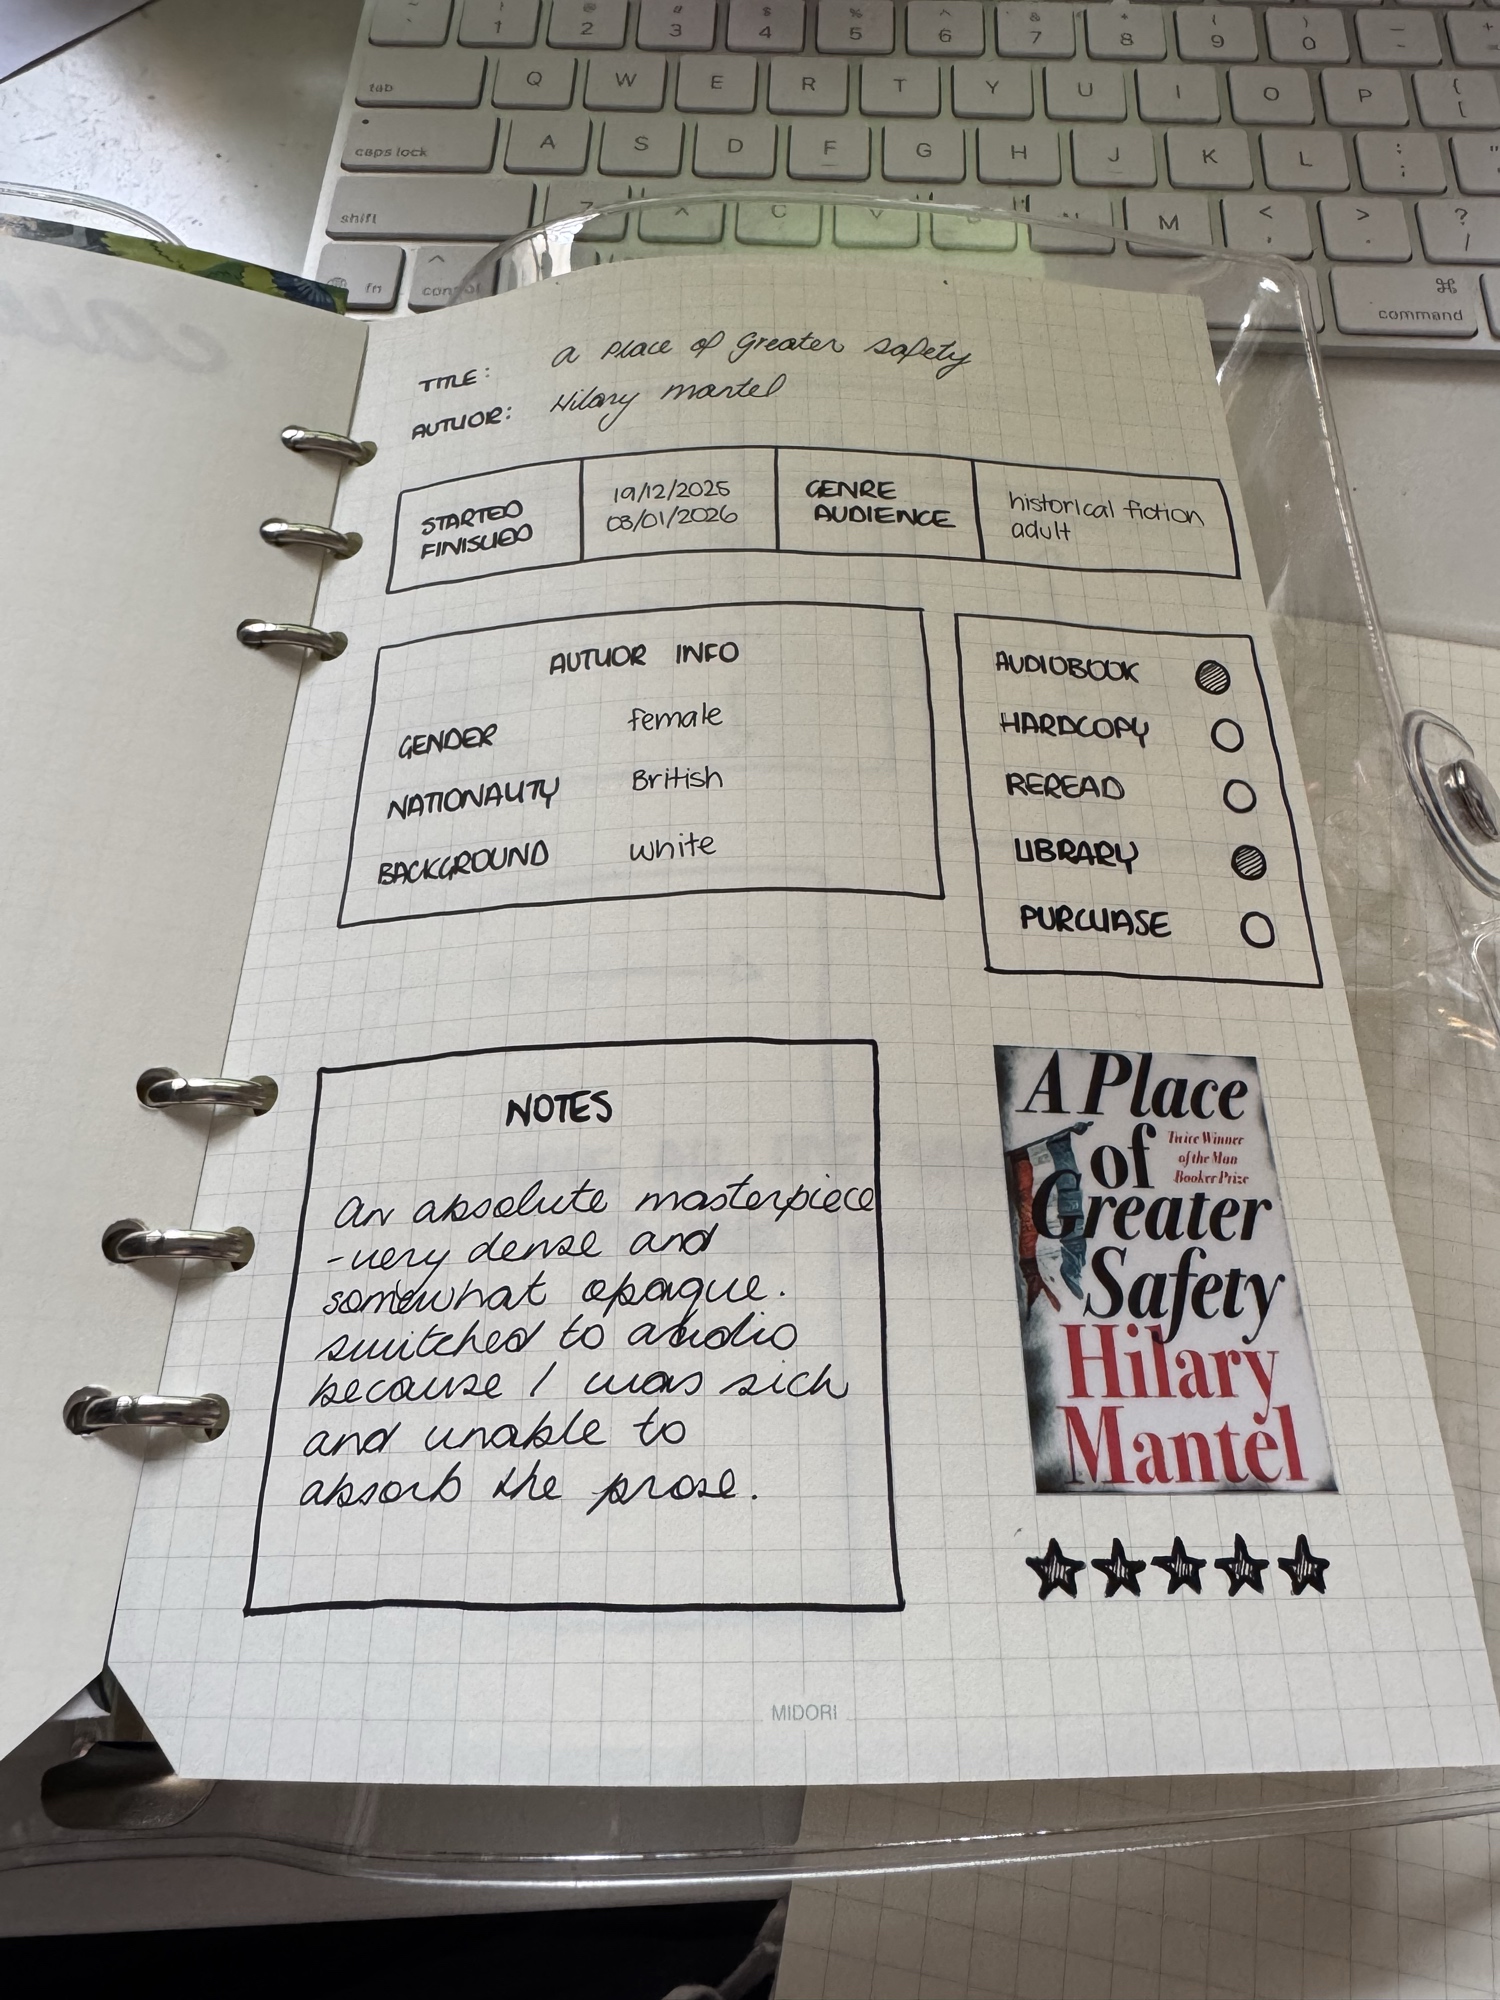 ~ ` ! 1 @ 2 # 3 $ 4 % 5 ^ 6 & 7 * 8 ( 9 ) 0 _ -
tab Q W E R T Y U I O P { [
caps lock A S D F G H J K L : ;
shift Z X C V B N M < , > . ? /
fn control ⌘ command
TITLE: a place of Greater safety
AUTHOR: Hilary mantel
STARTED 19/12/2025 GENRE historical fiction
FINISHED 03/01/2026 AUDIENCE adult
AUTHOR INFO
GENDER female
NATIONALITY British
BACKGROUND white
AUDIOBOOK
HARDCOPY
REREAD
LIBRARY
PURCHASE
NOTES
An absolute masterpiece
-very dense and
somewhat opaque.
switched to audio
because I was sick
and unable to
absorb the prose.
A Place
of
Greater
Safety
Twice Winner
of the Man
Booker Prize
Hilary
Mantel
MIDORI